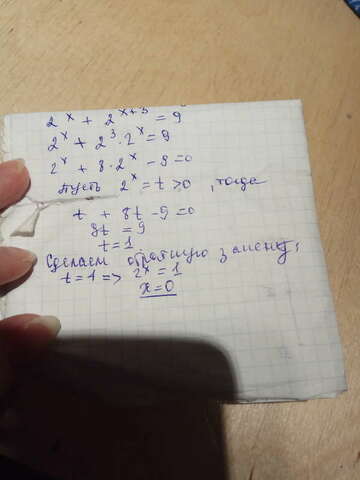 2^x + 2^{x+3} = 9
2^x + 2^3 · 2^x = 9
2^x + 8 · 2^x - 9 = 0
Пусть 2^x = t > 0 , тогда
t + 8t - 9 = 0
9t = 9
t = 1
Сделаем обратную замену,
t = 1 => 2^x = 1
x = 0